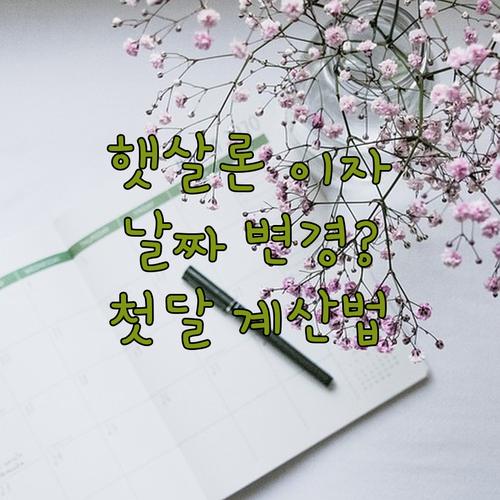 햇살론 이자
날짜 변경?
첫달 계산법